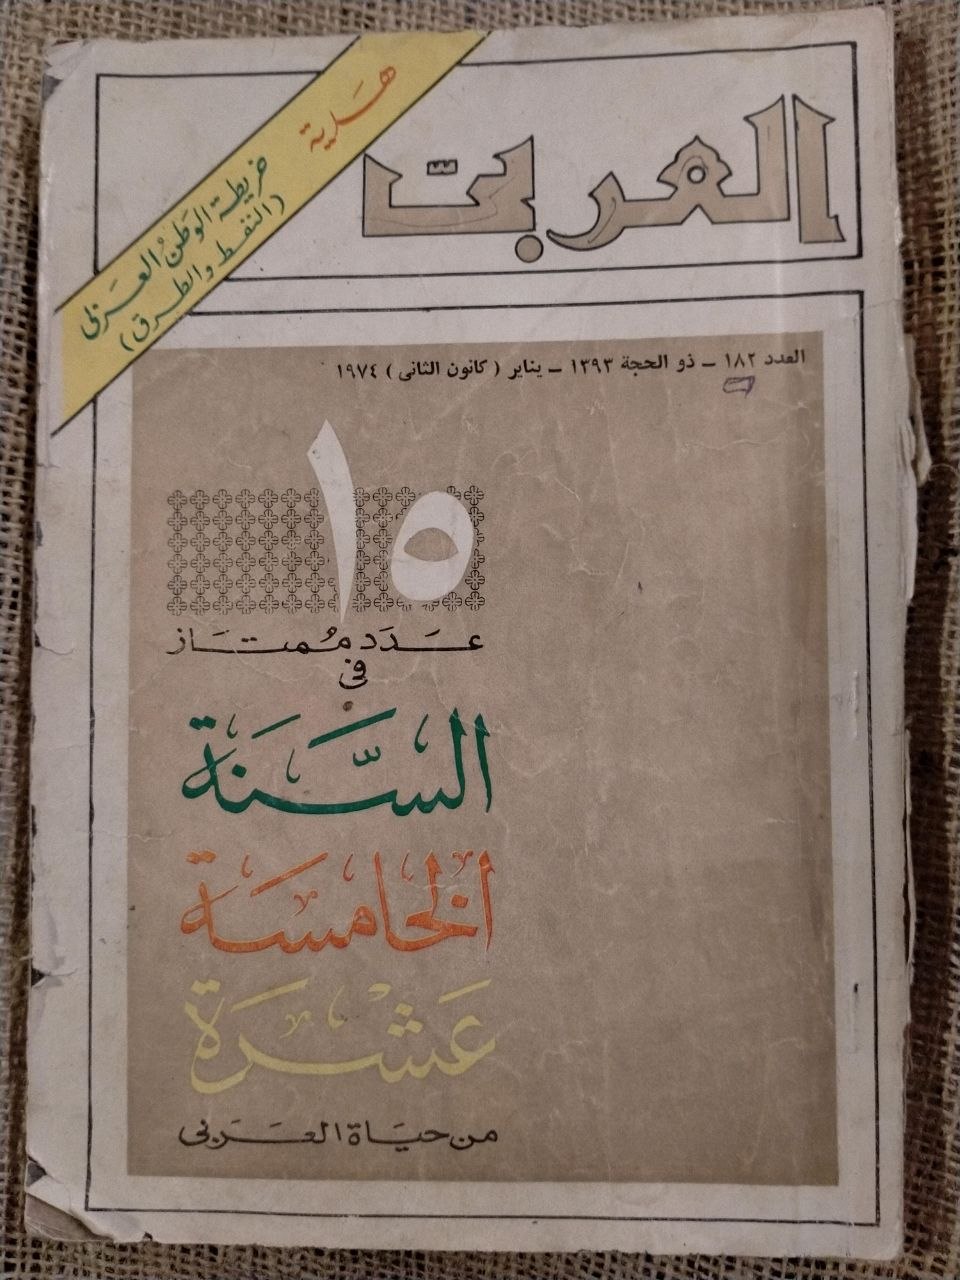 العربي
هدية
خريطة الوطن العربي
(النفط والطرق)
العدد ١٨٢ - ذو الحجة ١٣٩٣ - يناير ( كانون الثانى ) ١٩٧٤
١٥
عدد ممتاز
في
السنة
الخامسة
عشرة
من حياة العربي